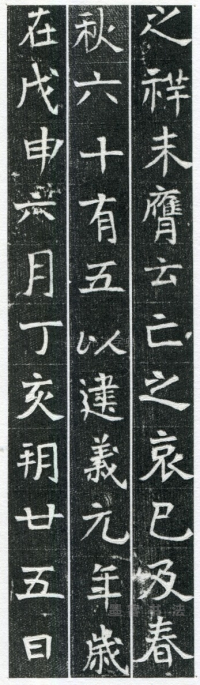 之祥未膺云亡之哀已及春
秋六十有五以建義元年歲
在戊申六月丁亥朔廿五日